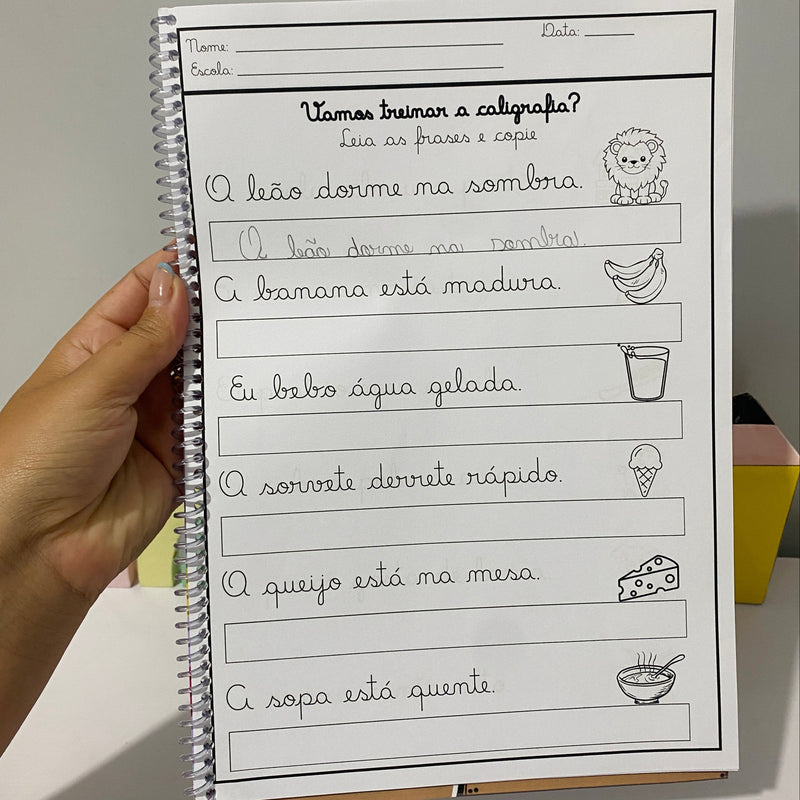 Nome:
Data:
Escola:
Vamos treinar a caligrafia?
Leia as frases e copie
O leão dorme na sombra.
O leão dorme na sombra.
A banana está madura.
Eu bebo água gelada.
O sorvete derrete rápido.
O queijo está na mesa.
A sopa está quente.